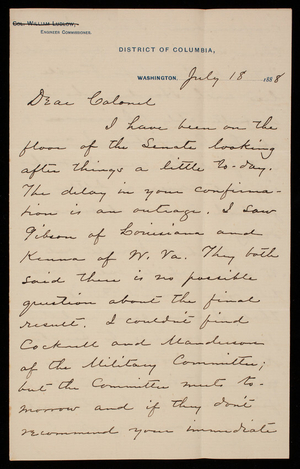 Col. William Ludlow,
Engineer Commissioner.
DISTRICT OF COLUMBIA,
WASHINGTON, July 18 1888
Dear Colonel
I have been on the
floor of the Senate looking
after things a little to-day.
The delay in your confirma-
tion is an outrage. I saw
Gibson of Louisiana and
Kenna of W. Va. They both
said there is no possible
question about the final
result. I couldn't find
Cockrell and Manderson
of the Military Committee;
but the Committee meets to-
morrow and if they don't
recommend your immediate